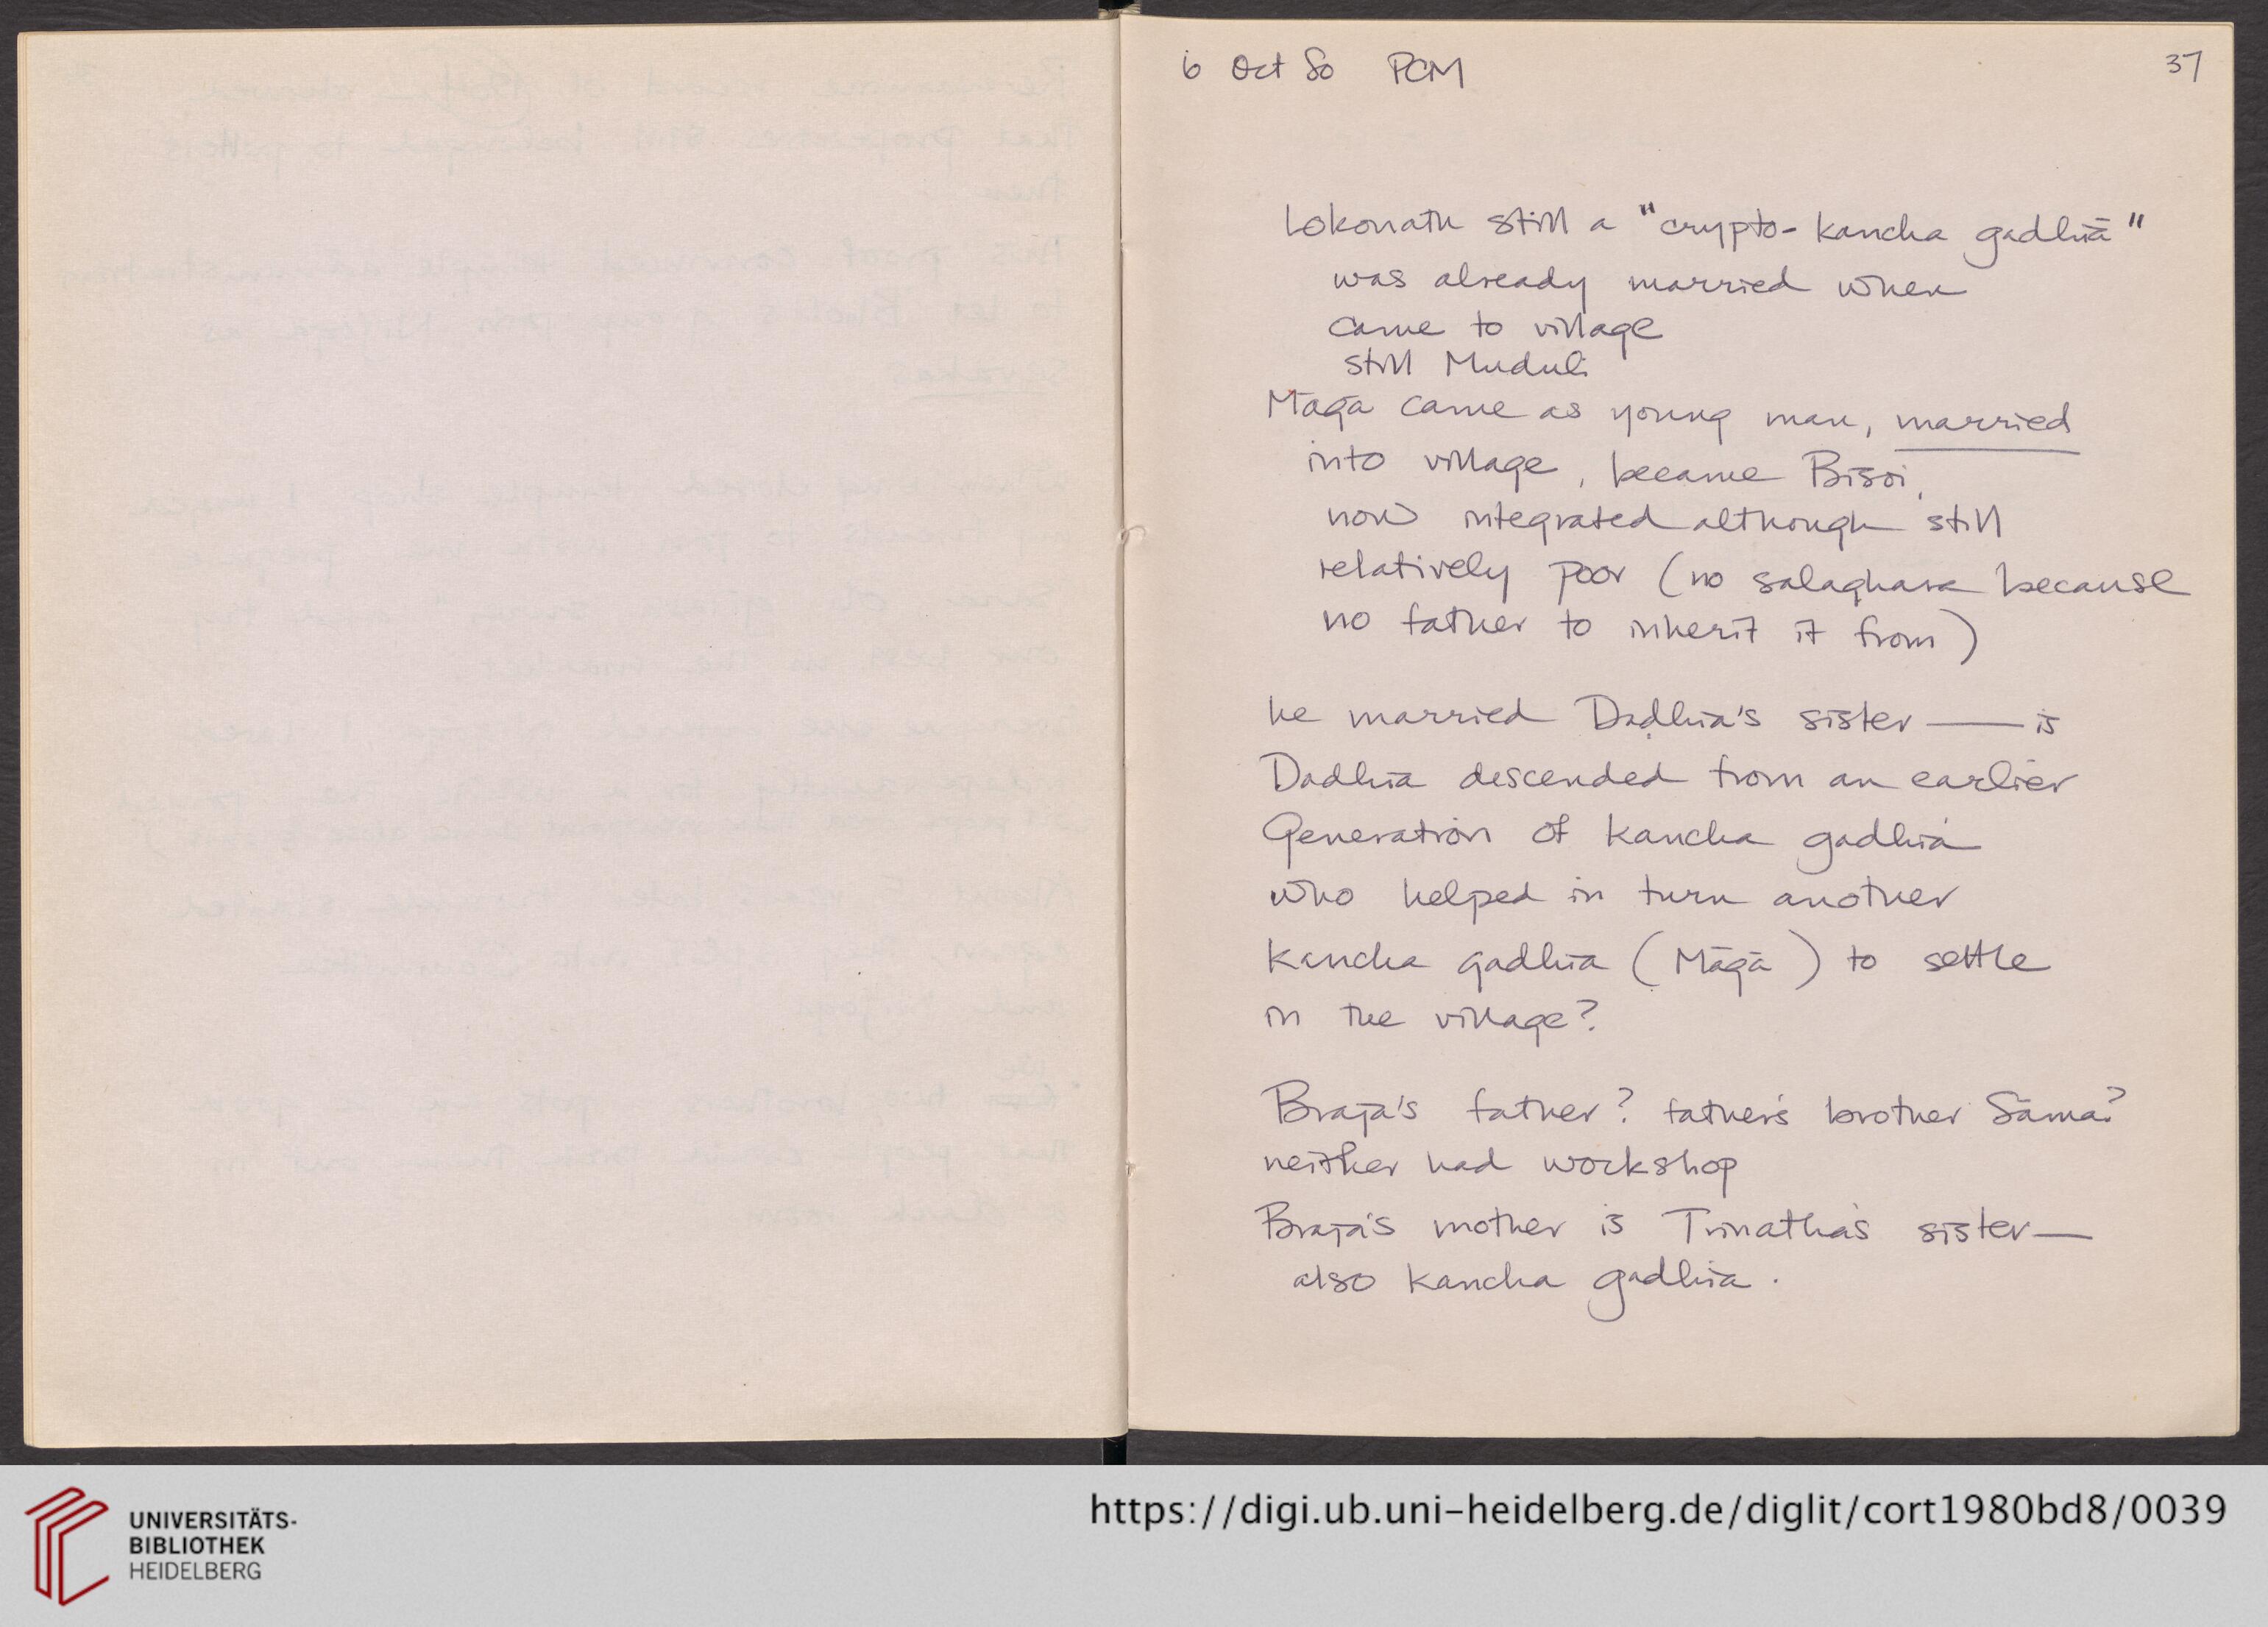 6 Oct 80 PCM 37
Lokonath still a "crypto-kancha gadhiā"
was already married when
came to village
still Muduli
Māgā came as young man, married
into village, became Bisoi,
now integrated although still
relatively poor (no salaghara because
no father to inherit it from)
he married Daḍhia's sister — is
Dadhia descended from an earlier
Generation of kancha gadhia
who helped in turn another
kancha gadhia (Māgā) to settle
in the village?
Braja's father? father's brother Sāma?
neither had workshop
Braja's mother is Trinatha's sister —
also kancha gadhia.
UNIVERSITÄTS-
BIBLIOTHEK
HEIDELBERG
https://digi.ub.uni-heidelberg.de/diglit/cort1980bd8/0039